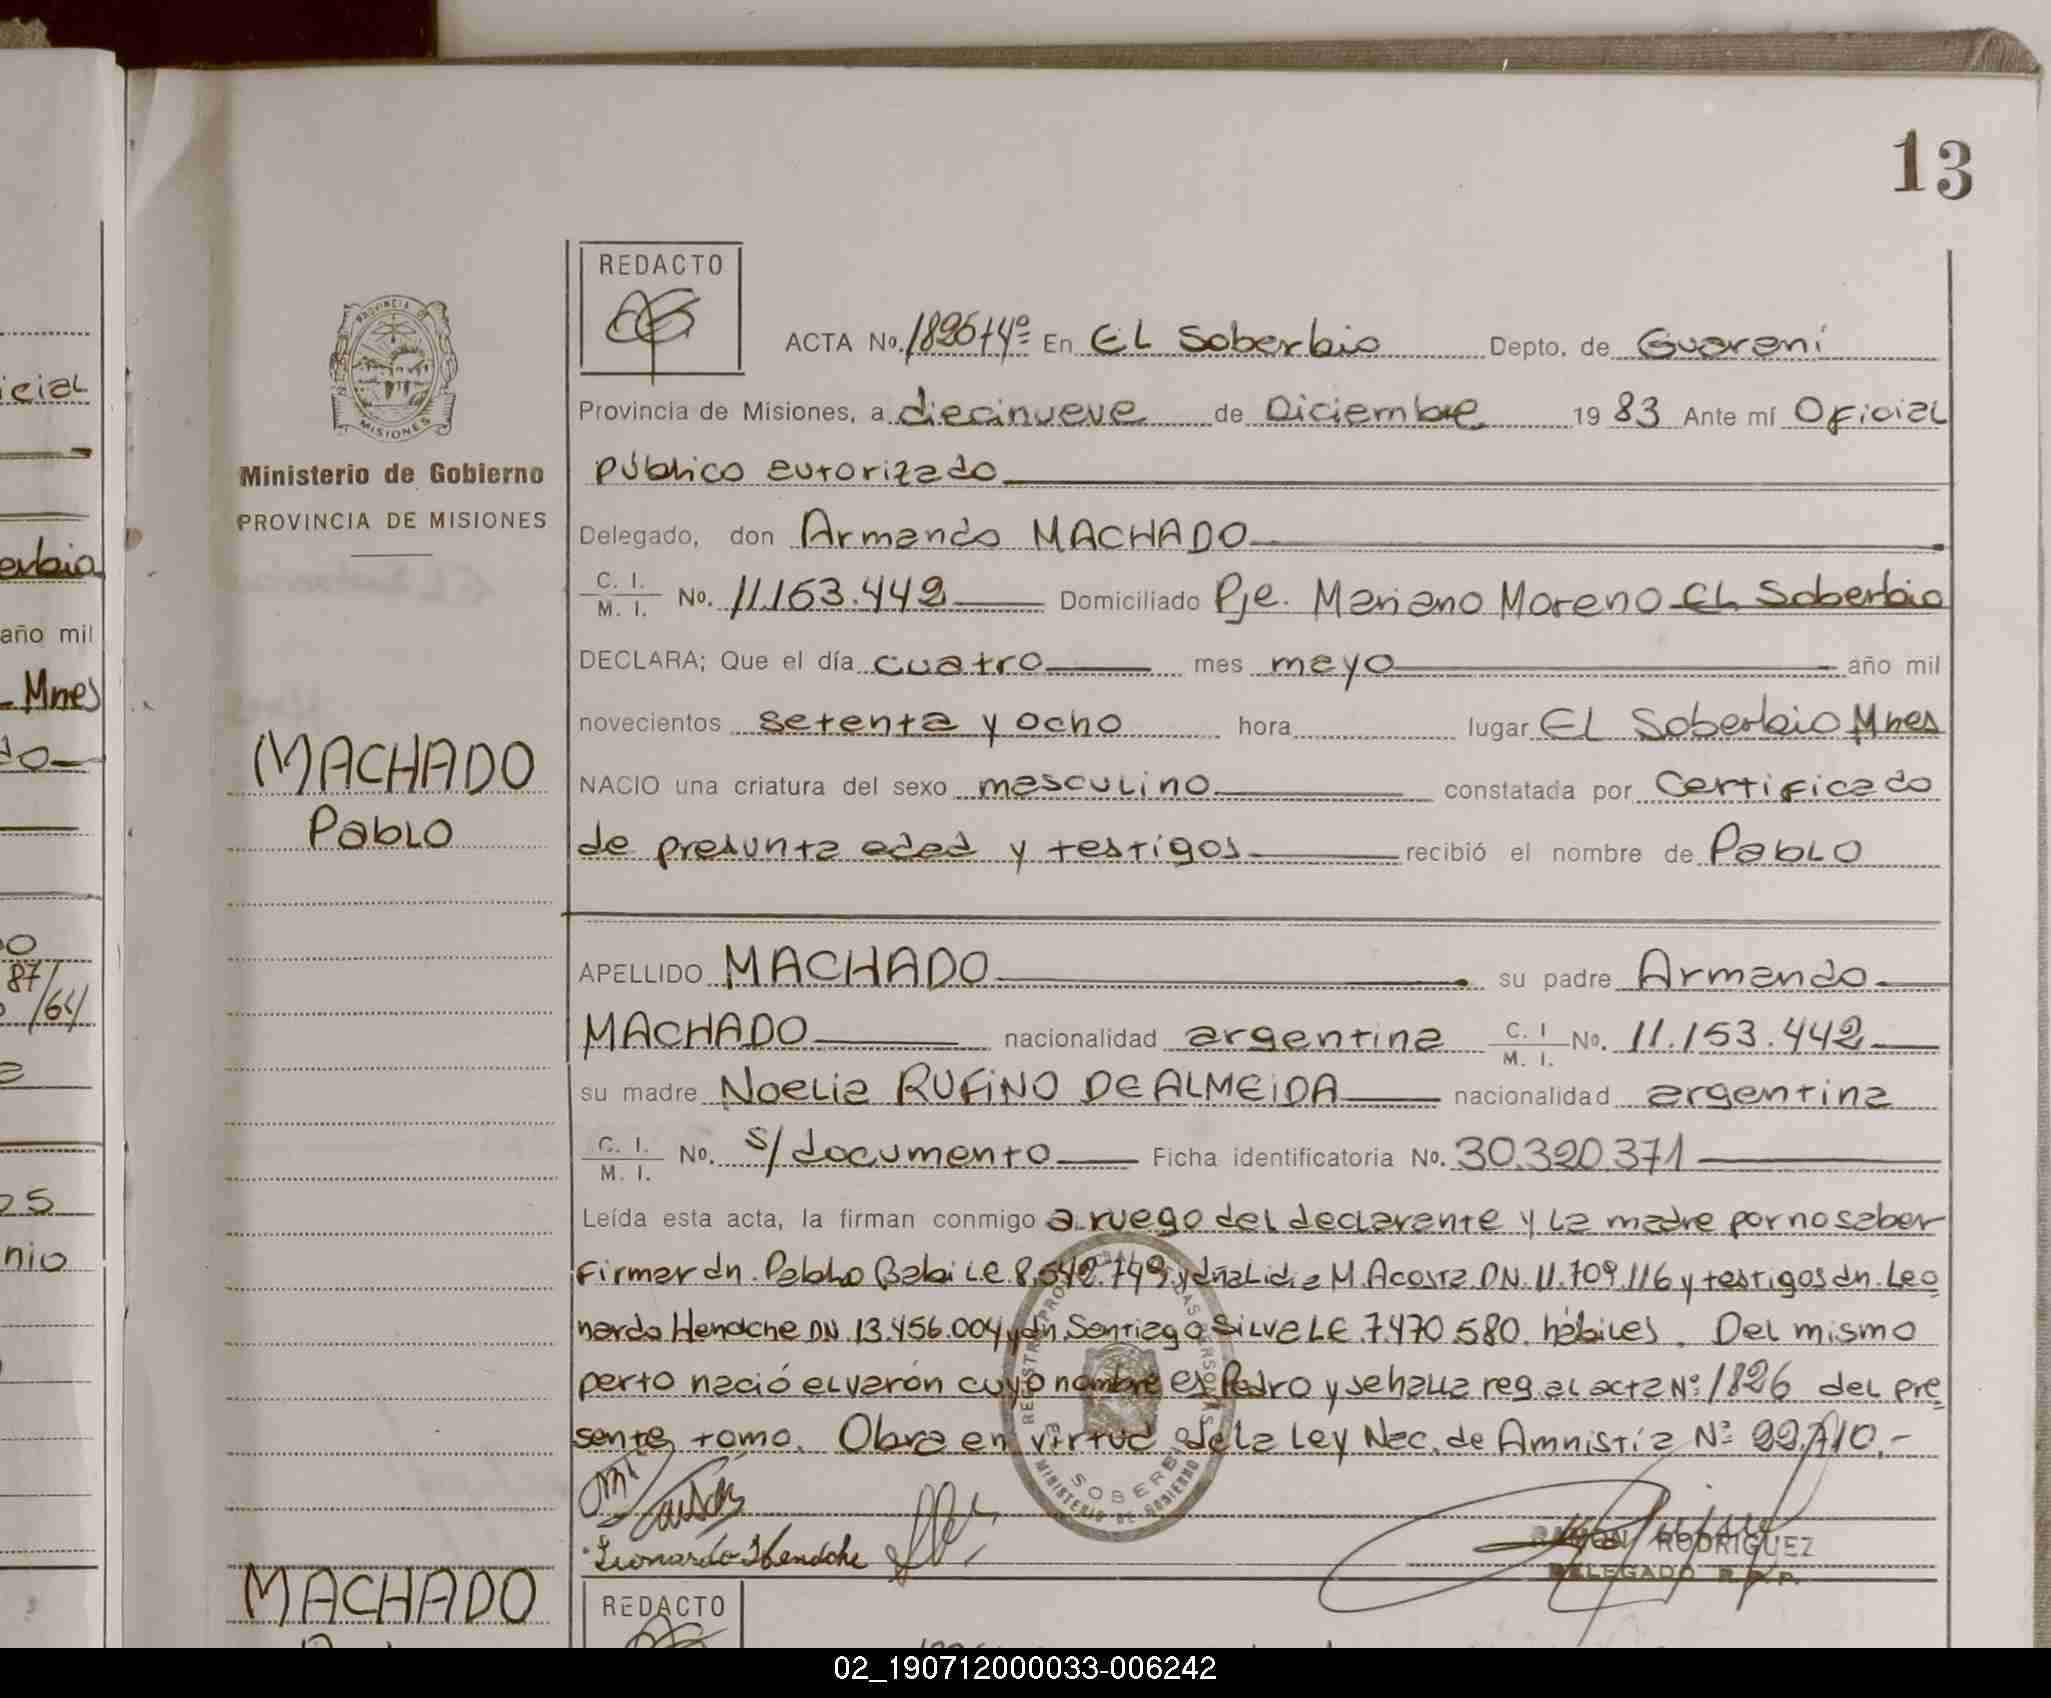 13
REDACTO
PROVINCIA DE
MISIONES
ACTA No. 1825 t4º En El Soberbio Depto. de Guaraní
icial
Provincia de Misiones, a diecinueve de Diciembre 1983 Ante mí Oficial
Ministerio de Gobierno
público autorizado
PROVINCIA DE MISIONES
Delegado, don Armando MACHADO
erbio
C. I. M. I. No. 11.153.442 Domiciliado Pje. Mariano Moreno El Soberbio
año mil
DECLARA; Que el día cuatro mes mayo año mil
Mnes
novecientos setenta y ocho hora lugar El Soberbio Mnes
MACHADO
NACIO una criatura del sexo masculino constatada por Certificado
Pablo
de presunta edad y testigos recibió el nombre de Pablo
APELLIDO MACHADO su padre Armando
87/64
MACHADO nacionalidad argentina C. I. M. I. No. 11.153.442
su madre Noelia RUFINO DE ALMEIDA nacionalidad argentina
C. I. M. I. No. s/documento Ficha identificatoria No. 30.320.371
Leída esta acta, la firman conmigo a ruego del declarante y la madre por no saber
nio
firmar dn. Pablo Babi L.E 8.542.749 y dña Lidia M Acosta DN. 11.709.116 y testigos dn. Leo
nardo Henache DN 13.456.004 y dn. Santiago Silva LE 7.470.580. hábiles. Del mismo
parto nació el varón cuyo nombre es Pedro y se halla reg al acta Nº 1826 del pre
sente tomo. Obra en virtud de la Ley Nac. de Amnistía Nº 22.710.-
SOBERBIO
MINISTERIO DE GOBIERNO
Leonardo Henache
RAMON RODRIGUEZ
DELEGADO R.P.P.
MACHADO
REDACTO
02_190712000033-006242